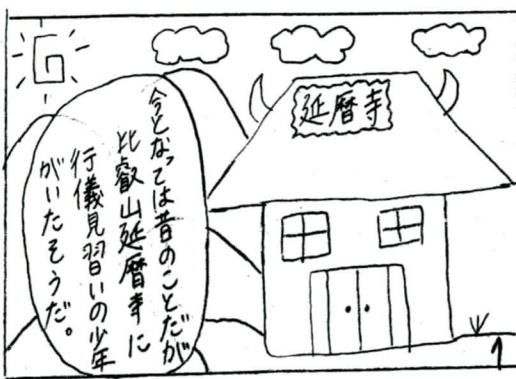 延暦寺
今となっては昔のことだが
比叡山延暦寺に
行儀見習いの少年
がいたそうだ。
1